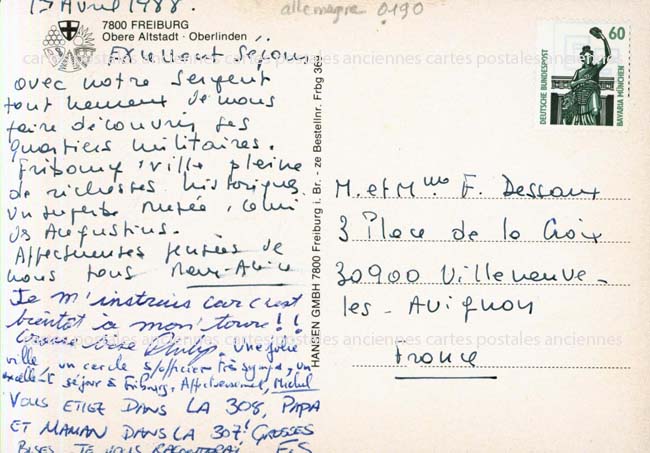 17 Avril 1988.
7800 FREIBURG
Obere Altstadt · Oberlinden
allemagne 0190
Excellent séjour
avec notre sergent
tout heureux de nous
faire découvrir ses
quartiers militaires.
Fribourg, ville pleine
de richesses historiques.
Un superbe musée, celui
des Augustins.
Affectueuses pensées de
nous tous
Je m'instruis car c'est
bientôt à mon tour !!
Grosse bise Philip. Une jolie
ville, un cercle s/officier très sympa, un
excellent séjour à Fribourg, Affectueusement, Michel
VOUS ETIEZ DANS LA 308, PAPA
ET MAMAN DANS LA 307! GROSSES
BISES. JE VOUS RACONTERAI
HANSEN GMBH 7800 Freiburg i. Br. - ze Bestellnr. Frbg 368
60
DEUTSCHE BUNDESPOST
BAVARIA MÜNCHEN
M. et Mme F. Dessaux
3 Place de la Croix
30900 Villeneuve-
les-Avignon
France
cartes postales anciennes cartes postales anciennes cartes postales anciennes
cartes postales anciennes cartes postales anciennes cartes postales anciennes